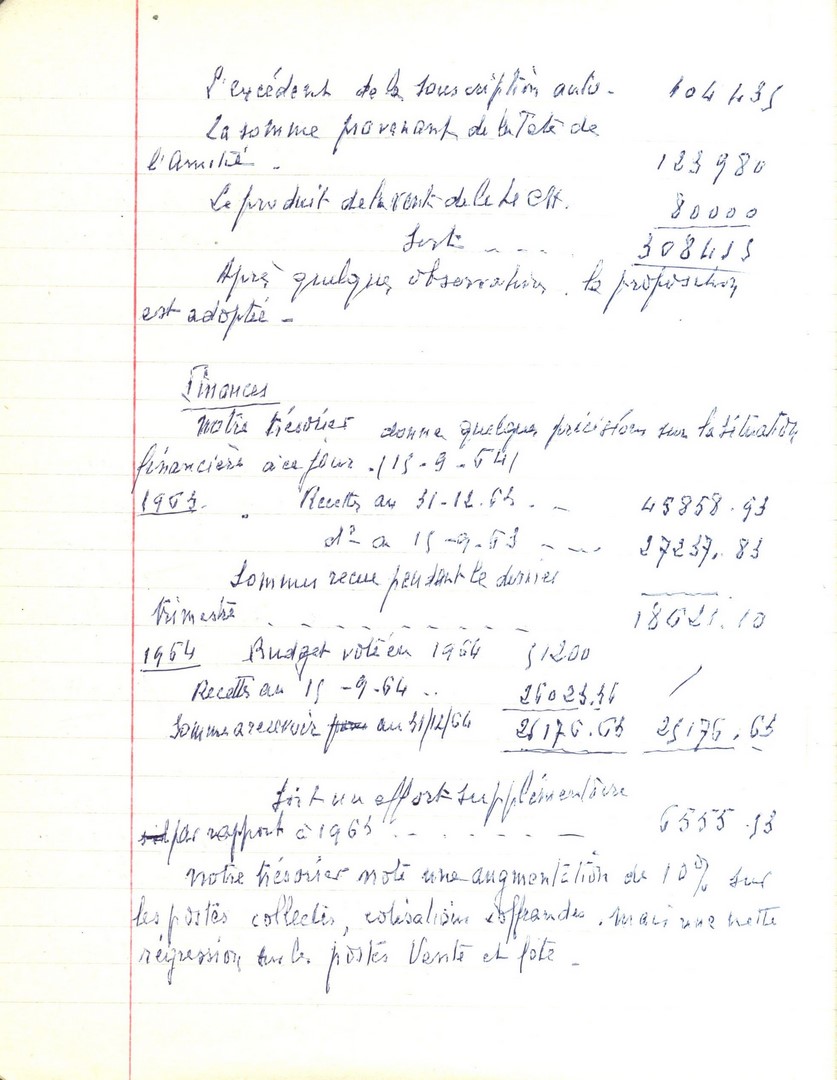 L'excédent de la souscription auto - 104 435
La somme provenant de la Fete de
l'Amitié - 123 980
Le produit de la vente de le 80000
Soit - - - 308415
Après quelques observations, la proposition
est adoptée -
Finances
notre trésorier donne quelques précisions sur la situation
financière à ce jour - (15-9-64)
1963. Recettes au 31-12.63 - - 45858.93
d° au 15-9-63 - - - 27237.83
Sommes recue pendant le dernier
trimestre - - - - - - - - - 18621.10
1964 Budget voté en 1964 51200
Recettes au 15-9-64 .. 26023.36
Somme a recevoir pour au 31/12/64 25176.63 25176.63
Soit un effort supplémentaire
par rapport à 1963 - - - - - - 6555.53
notre trésorier note une augmentation de 10% sur
les postes collectes, cotisations offrandes, mais une nette
régression sur les postes Vente et fete -